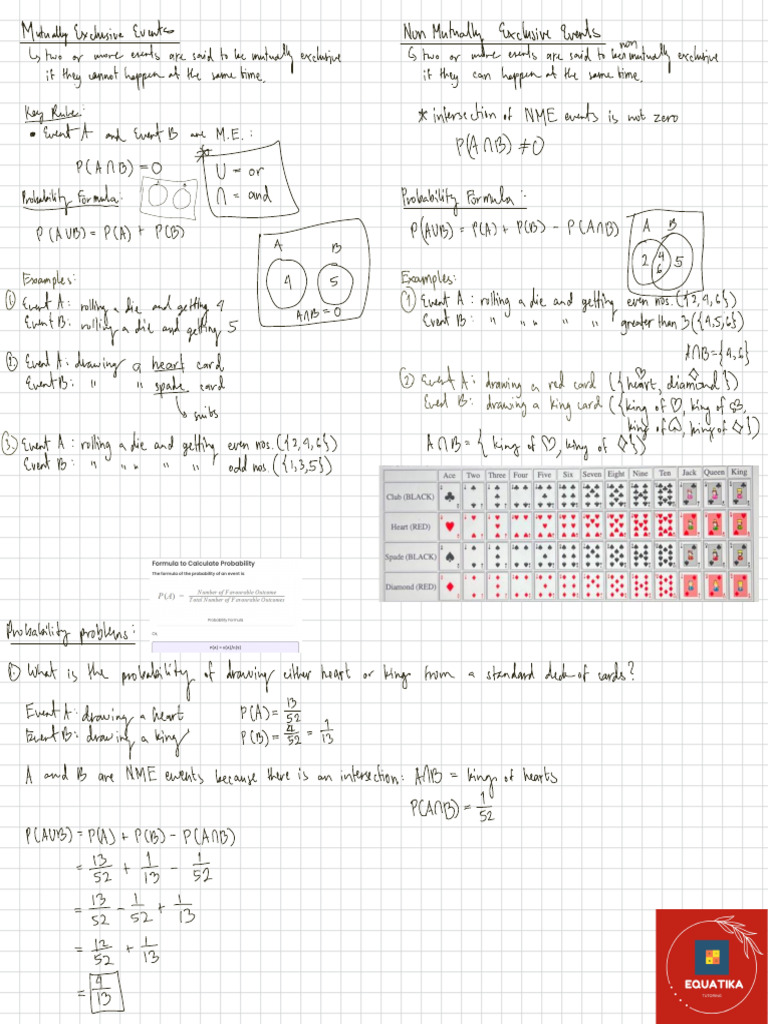 Mutually Exclusive Events
↳ two or more events are said to be mutually exclusive
if they cannot happen at the same time.
Key Rule:
• Event A and Event B are M.E.:
P(A∩B) = 0
* U = or
∩ = and
Probability Formula:
P(A∪B) = P(A) + P(B)
A B
4 5
A∩B = 0
Examples:
① Event A: rolling a die and getting 4
Event B: rolling a die and getting 5
② Event A: drawing a heart card
Event B: " " spade card
↳ suits
③ Event A: rolling a die and getting even nos. ({2,4,6})
Event B: " " " " " odd nos. ({1,3,5})
Non Mutually Exclusive Events
↳ two or more events are said to be non mutually exclusive
if they can happen at the same time.
* intersection of NME events is not zero
P(A∩B) ≠ 0
Probability Formula:
P(A∪B) = P(A) + P(B) - P(A∩B)
A B
2 4 6 5
Examples:
① Event A: rolling a die and getting even nos. ({2,4,6})
Event B: " " " " " greater than 3 ({4,5,6})
A∩B = {4,6}
② Event A: drawing a red card ({heart, diamond})
Event B: drawing a king card ({king of ♡, king of ♧,
king of ♤, king of ♢})
A∩B = {king of ♡, king of ♢}
Ace Two Three Four Five Six Seven Eight Nine Ten Jack Queen King
Club (BLACK)
Heart (RED)
Spade (BLACK)
Diamond (RED)
Formula to Calculate Probability
The formula of the probability of an event is:
P(A) = Number of Favourable Outcome / Total Number of Favourable Outcomes
Probability Formula
Or,
P(A) = n(A)/n(S)
Probability problems:
①. What is the probability of drawing either heart or king from a standard deck of cards?
Event A: drawing a heart P(A) = 13/52
Event B: drawing a king P(B) = 4/52 = 1/13
A and B are NME events because there is an intersection: A∩B = king of hearts
P(A∩B) = 1/52
P(A∪B) = P(A) + P(B) - P(A∩B)
= 13/52 + 1/13 - 1/52
= 13/52 - 1/52 + 1/13
= 12/52 + 1/13
= 4/13
EQUATIKA
TUTORING